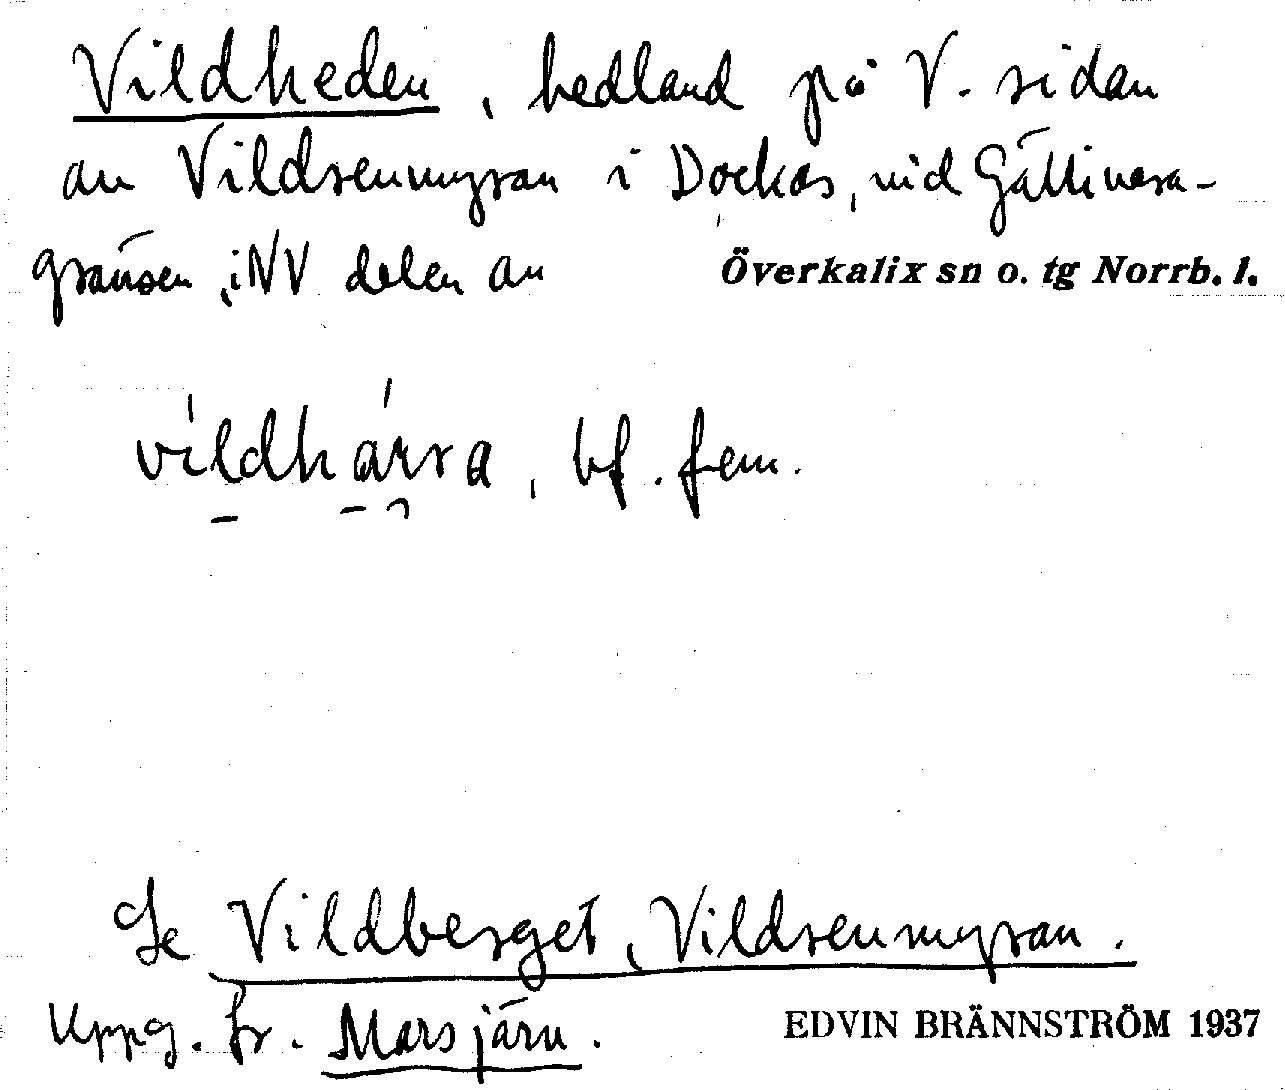 Vildheden, hedland på V. sidan
av Vildrenmyran i Dockas, vid Gällivara-
gränsen, i NV delen av Överkalix sn o. tg Norrb. l.
vildhärra, bf. fem.
Se Vildberget, Vildrenmyran.
Uppg. fr. Marsjärv.
EDVIN BRÄNNSTRÖM 1937